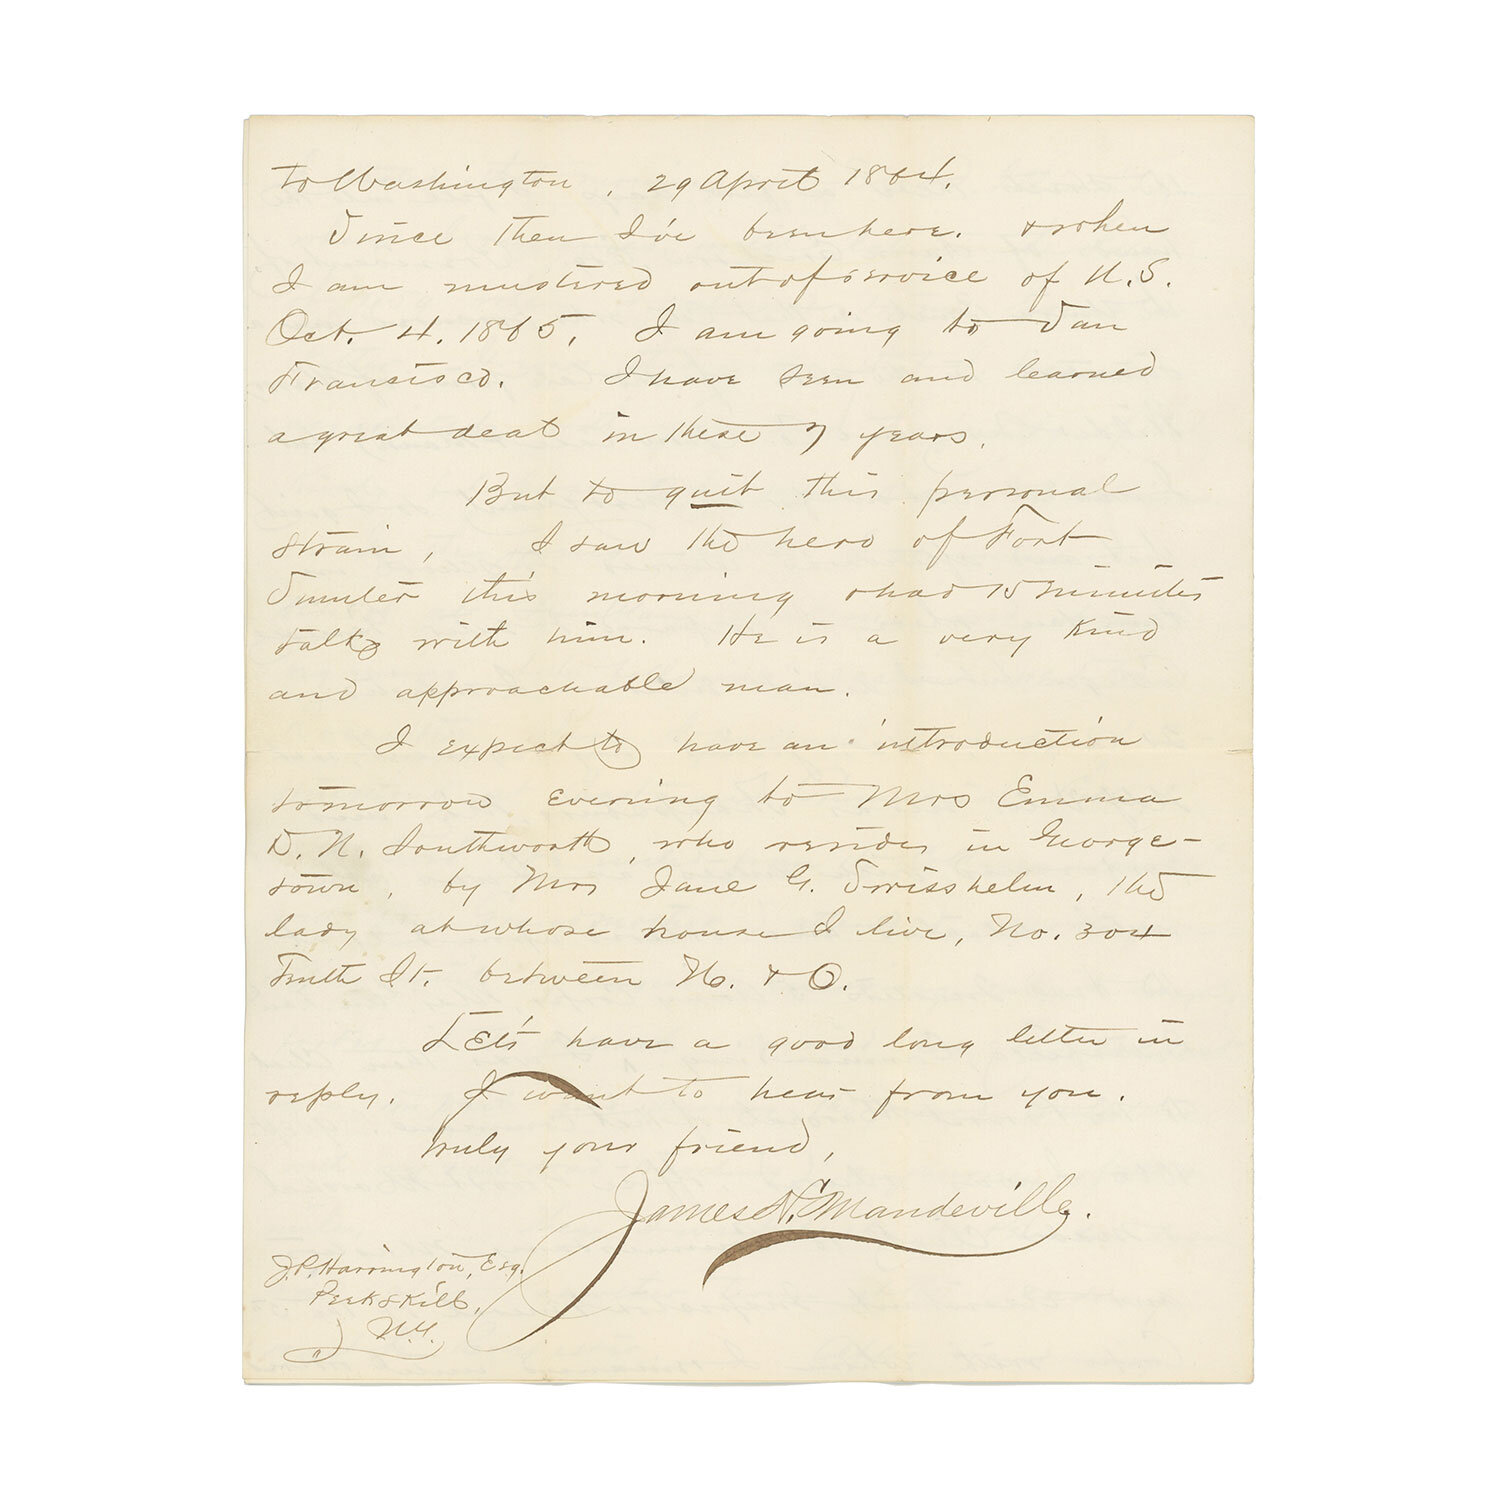 to Washington, 29 April 1864.
Since then I've been here. & when
I am mustered out of service of U.S.
Oct. 4. 1865, I am going to San
Francisco. I have seen and learned
a great deal in these 7 years.
But to quit this personal
strain, I saw the hero of Fort
Sumter this morning & had 15 minutes
talk with him. He is a very kind
and approachable man.
I expect to have an introduction
tomorrow evening to Mrs Emma
D. N. Southworth, who resides in George-
town, by Mrs Jane G. Swisshelm, the
lady at whose house I live, No. 304
Tenth St. between N. & O.
Let's have a good long letter in
reply. I want to hear from you.
Truly your friend,
James N. Mandeville.
J.P. Harrington, Esq.
Peekskill,
N.Y.